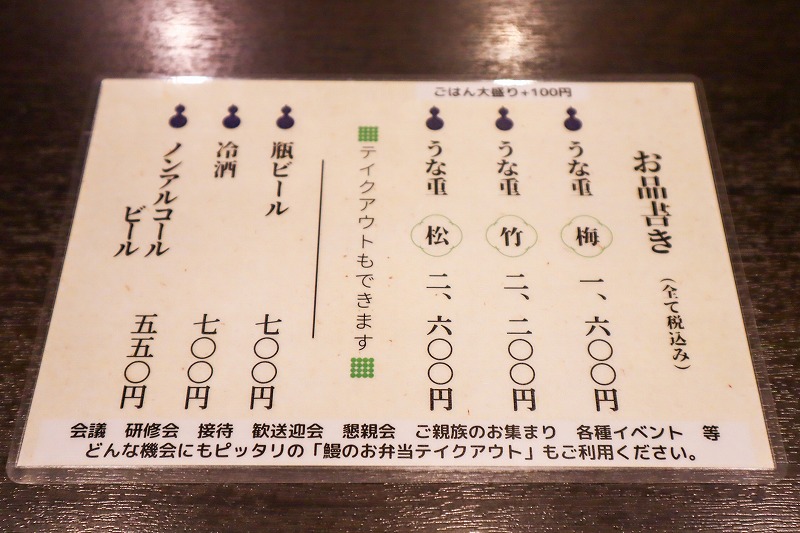 ごはん大盛り+100円
お品書き
(全て税込み)
うな重 梅 一、六〇〇円
うな重 竹 二、二〇〇円
うな重 松 二、六〇〇円
テイクアウトもできます
瓶ビール 七〇〇円
冷酒 七〇〇円
ノンアルコール
ビール 五五〇円
会議 研修会 接待 歓送迎会 懇親会 ご親族のお集まり 各種イベント 等
どんな機会にもピッタリの「鰻のお弁当テイクアウト」もご利用ください。